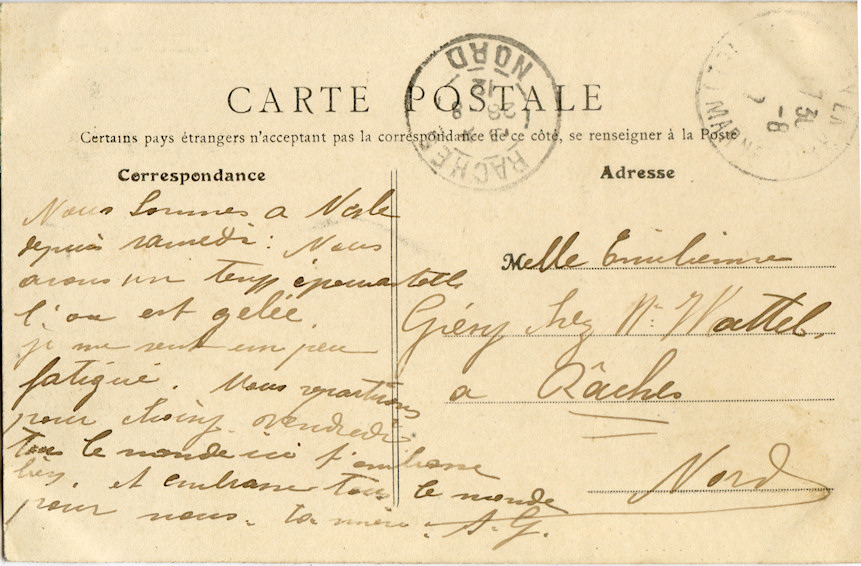 CARTE POSTALE
Certains pays étrangers n'acceptant pas la correspondance de ce côté, se renseigner à la Poste
Correspondance
Nous sommes a Nesle
depuis samedi : Nous
avons un temp épouvantable
l'on est gelée.
je me sent un peu
fatigué. Nous repartirons
pour Choisy vendredi
tous le monde ici t'embrasse
bien et embrasse tous le monde
pour nous. ta mère. A. G.
Adresse
Melle Emilienne
Gréry chez Mr Wattel
a Râches
Nord
RACHES
NORD
28
8
12
MARNE
31
-8